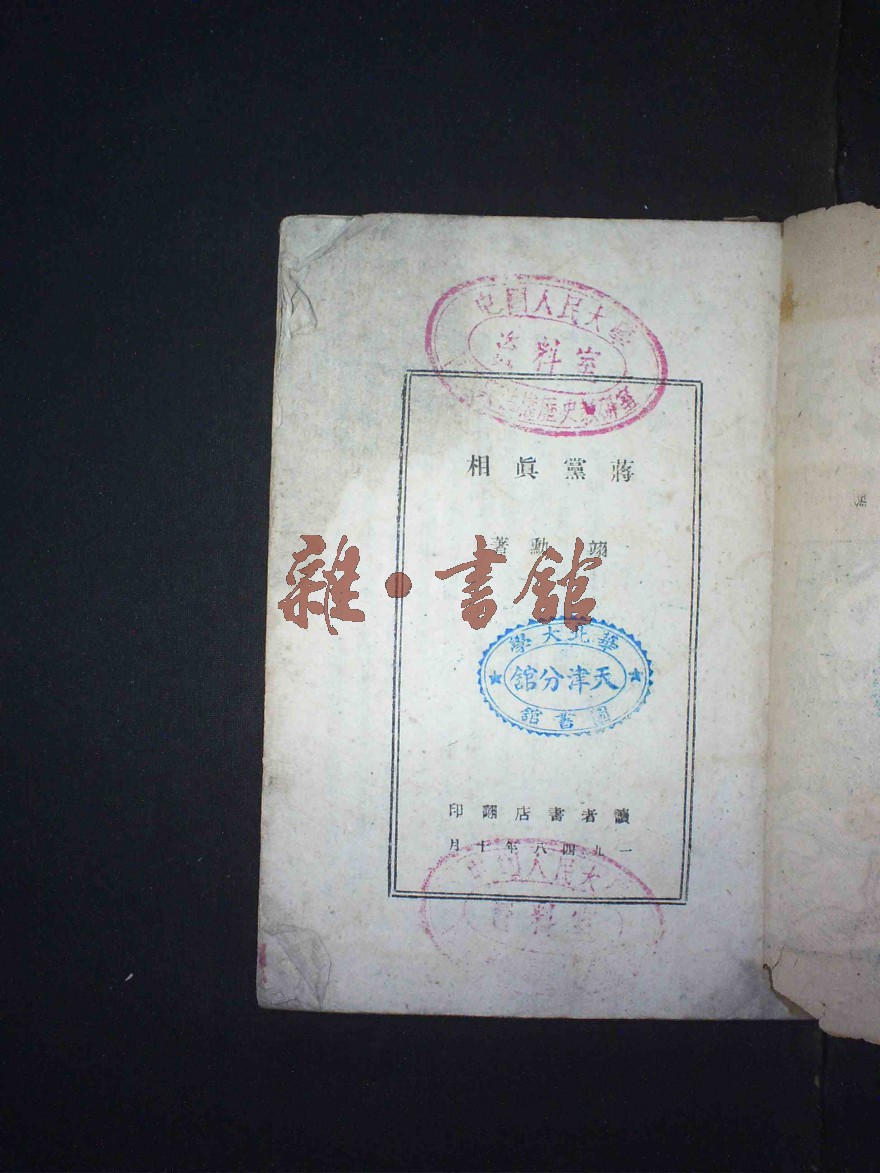 中國人民大學
資料室
歷史教研室
蔣黨眞相
翊勳著
雜·書館
華北大學
天津分館
圖書館
讀者書店翻印
一九四八年十月
中國人民大
資料室